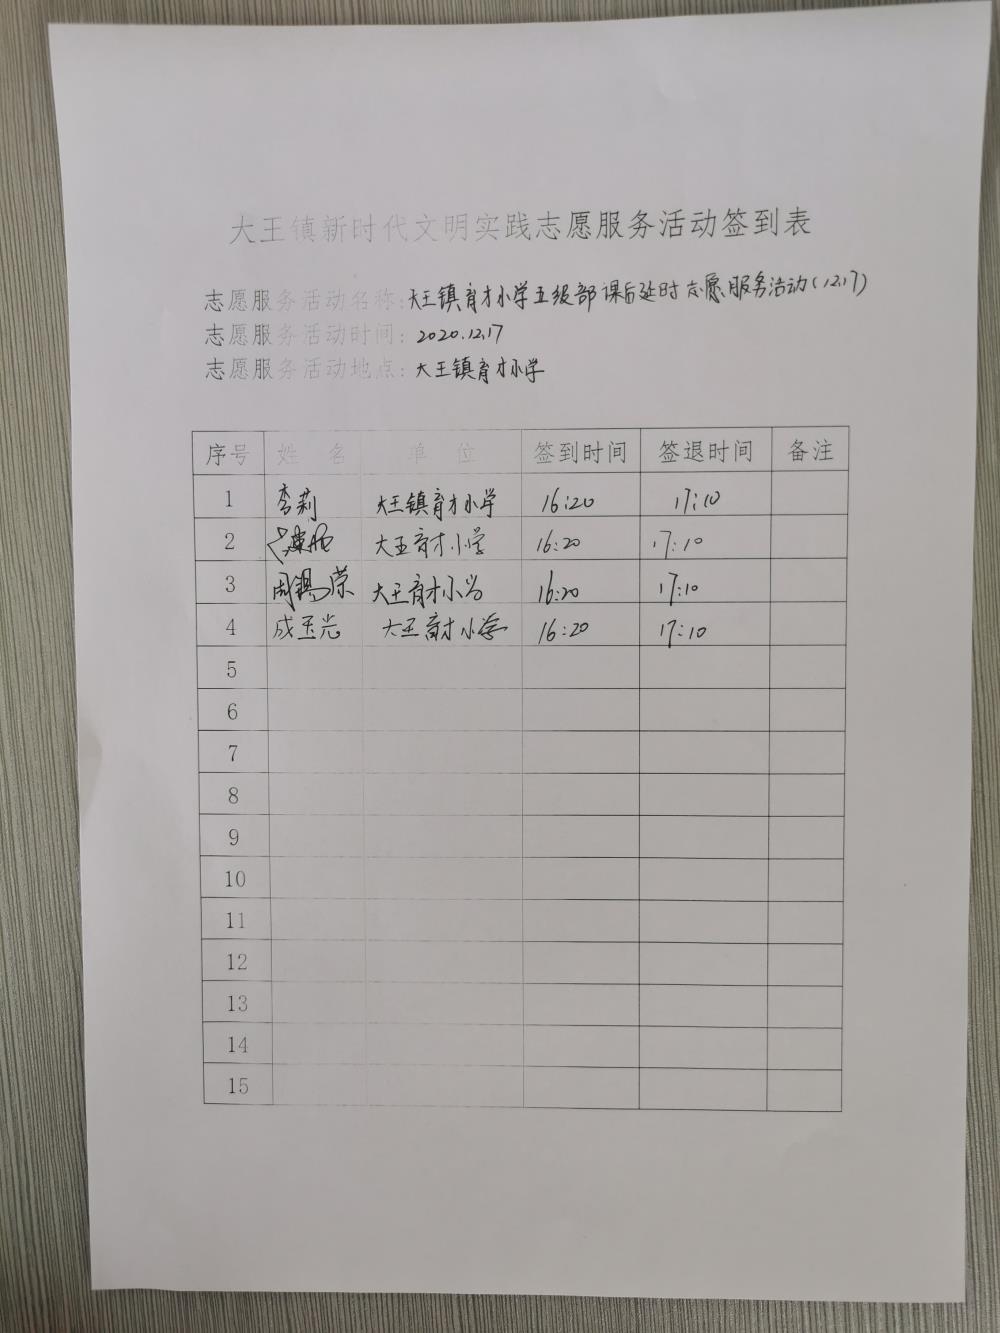 大王镇新时代文明实践志愿服务活动签到表
志愿服务活动名称:大王镇育才小学五级部课后延时志愿服务活动(12.17)
志愿服务活动时间:2020.12.17
志愿服务活动地点:大王镇育才小学
序号 姓 名 单 位 签到时间 签退时间 备注
1 李莉 大王镇育才小学 16:20 17:10
2 大王育才小学 16:20 17:10
3 周锡荣 大王育才小学 16:20 17:10
4 成玉光 大王育才小学 16:20 17:10
5
6
7
8
9
10
11
12
13
14
15